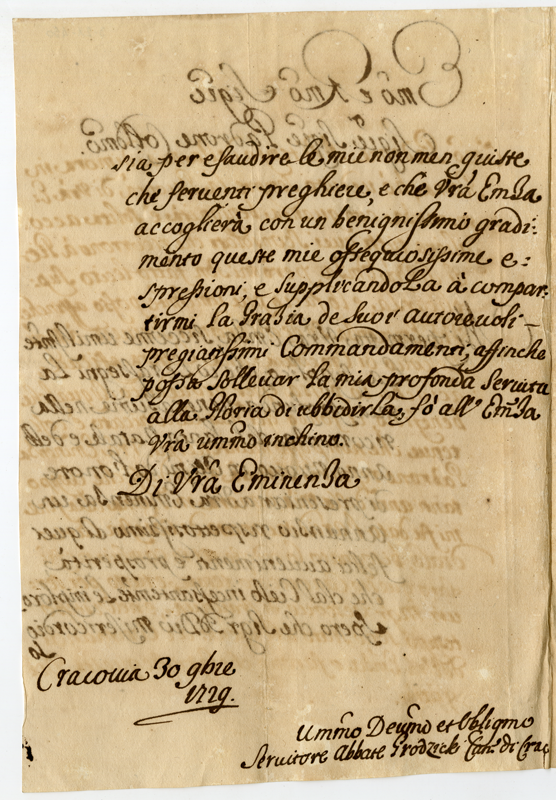 sia per esaudire le mie non men giuste
che ferventi preghiere, e che Vrã Emza
accoglierà con un benignissimo gradi:
mento queste mie ossequiosissime e:
spressioni, e supplicandoLa à compar:
tirmi la Grazia de suoi autorevoli-
pregiatissimi Commandamenti, affinche
possa sollevar la mia profonda Servitù
alla Gloria di ubbidirLa, fò all' Emza
Vrã ummo inchino.
Di Vrã Eminenza
Cracovia 30 9bre
1729.
Ummo Devmo et Obligmo
Servitore Abbate Grodzicki Can: di Crac